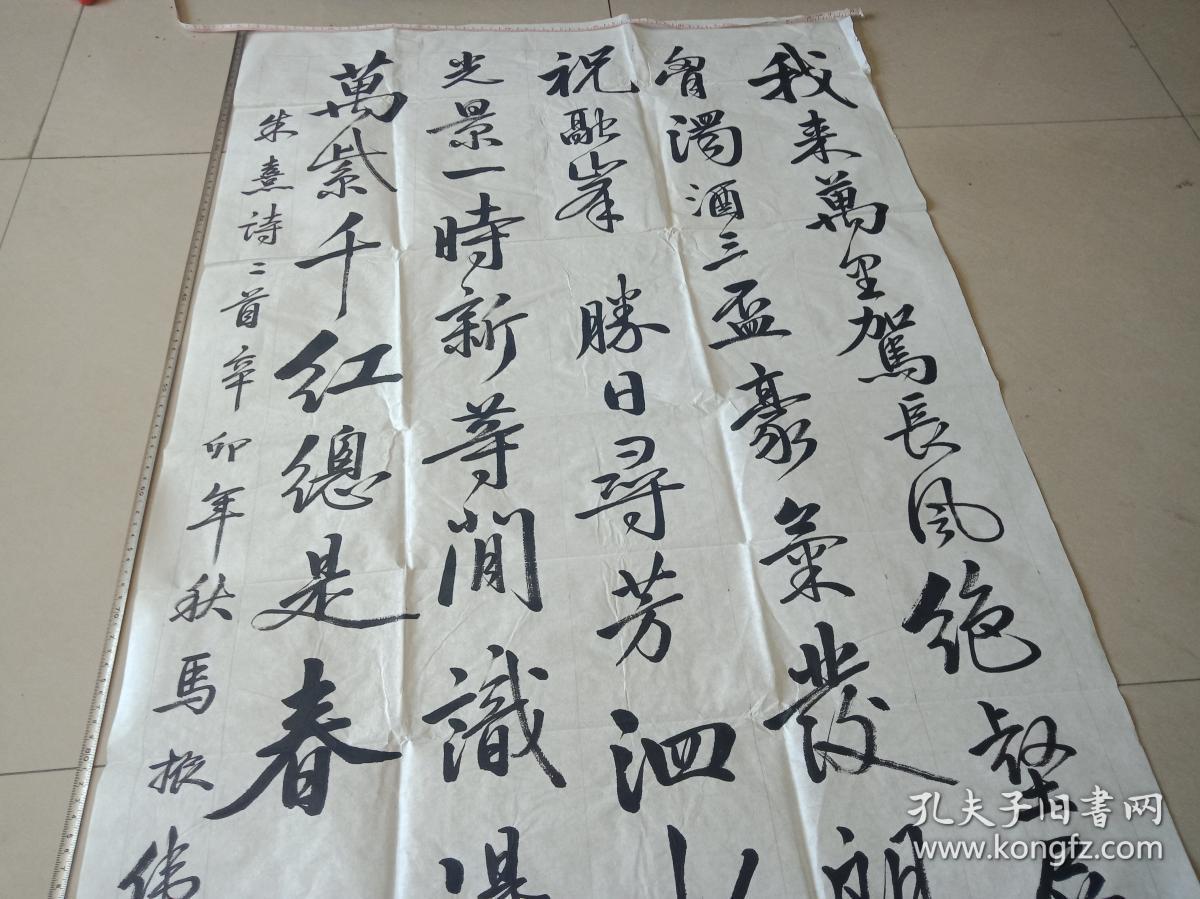 我来萬里駕長風絶壑
胷濁酒三盃豪氣發朗
祝融峯 勝日尋芳泗
光景一時新等閒識得
萬紫千红總是春
朱熹詩二首辛卯年秋馬振伟
孔夫子旧書网
www.kongfz.com